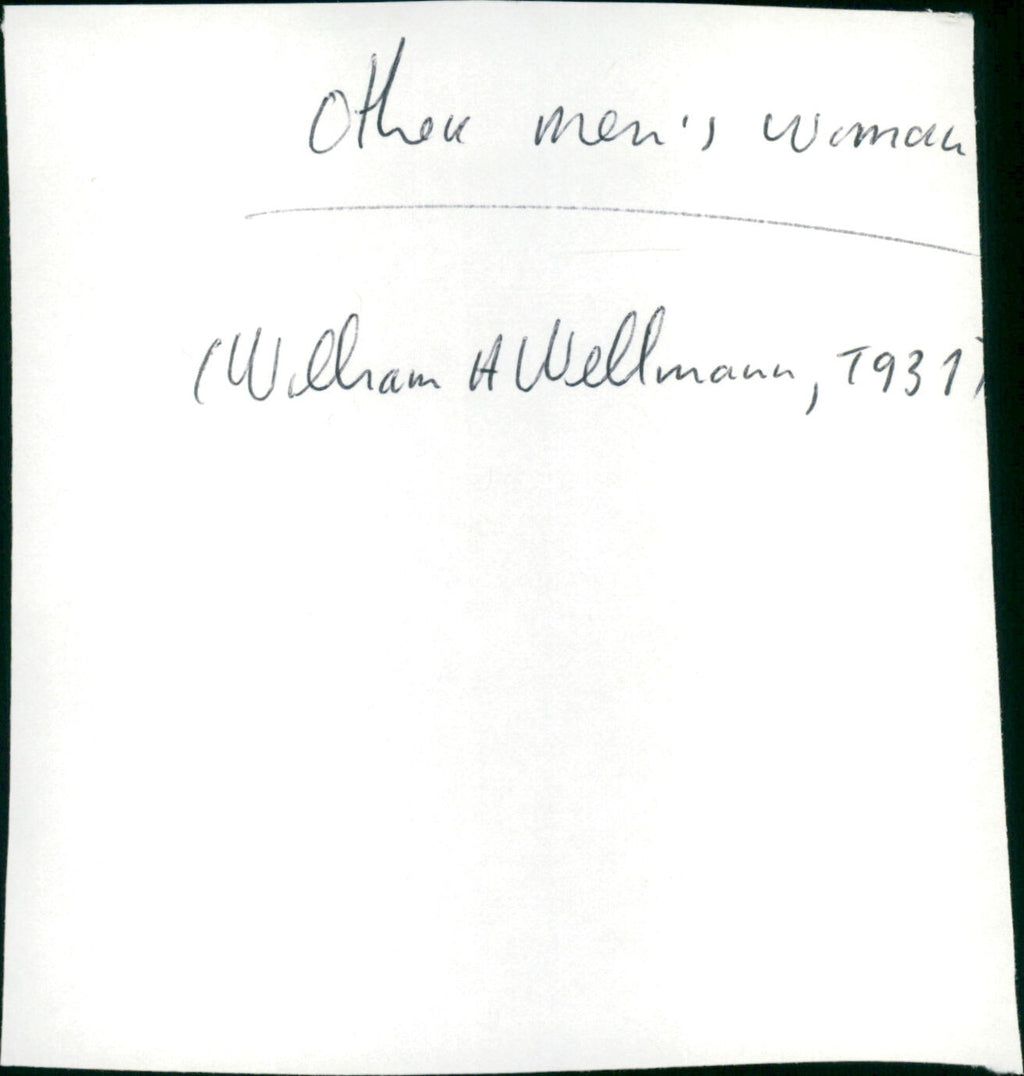 Other men's woman
(William A Wellmann, 1931)